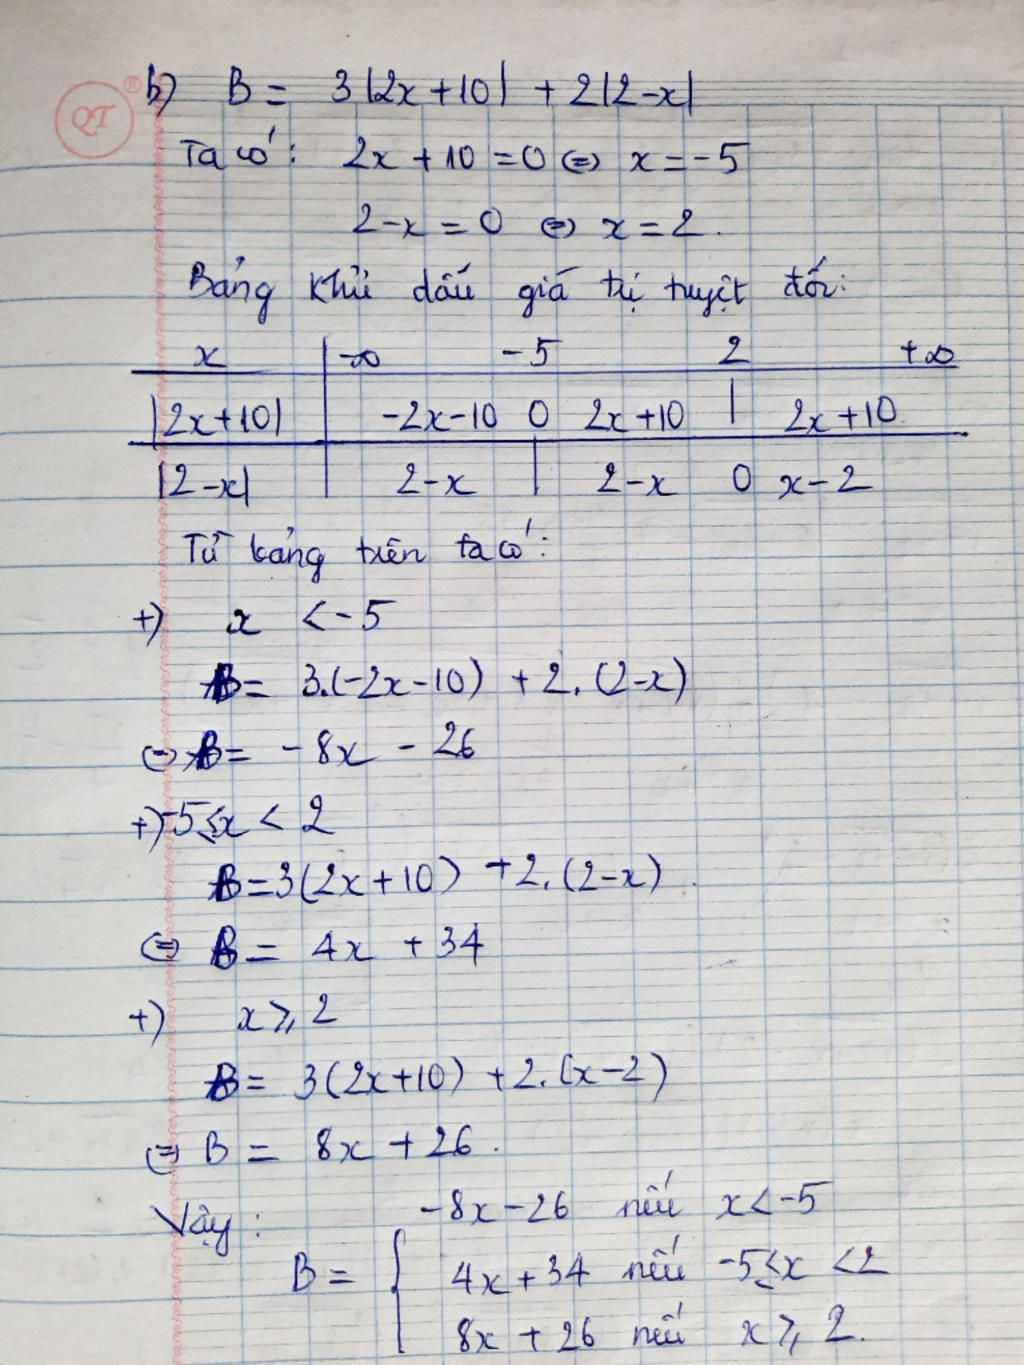 QT ®
b) B = 3|2x+10| + 2|2-x|
Ta có: 2x + 10 = 0 ⇔ x = -5
2-x = 0 ⇔ x = 2.
Bảng khử dấu giá trị tuyệt đối:
x -∞ -5 2 +∞
|2x+10| -2x-10 0 2x+10 | 2x+10
|2-x| 2-x | 2-x 0 x-2
Từ bảng trên ta có:
+) x < -5
B = 3.(-2x-10) + 2.(2-x)
⇔ B = -8x - 26
+) -5 ≤ x < 2
B = 3(2x+10) + 2.(2-x).
⇔ B = 4x + 34
+) x ≥ 2
B = 3(2x+10) + 2.(x-2)
⇔ B = 8x + 26.
Vậy: -8x-26 nếu x < -5
B = { 4x + 34 nếu -5 ≤ x < 2
8x + 26 nếu x ≥ 2.